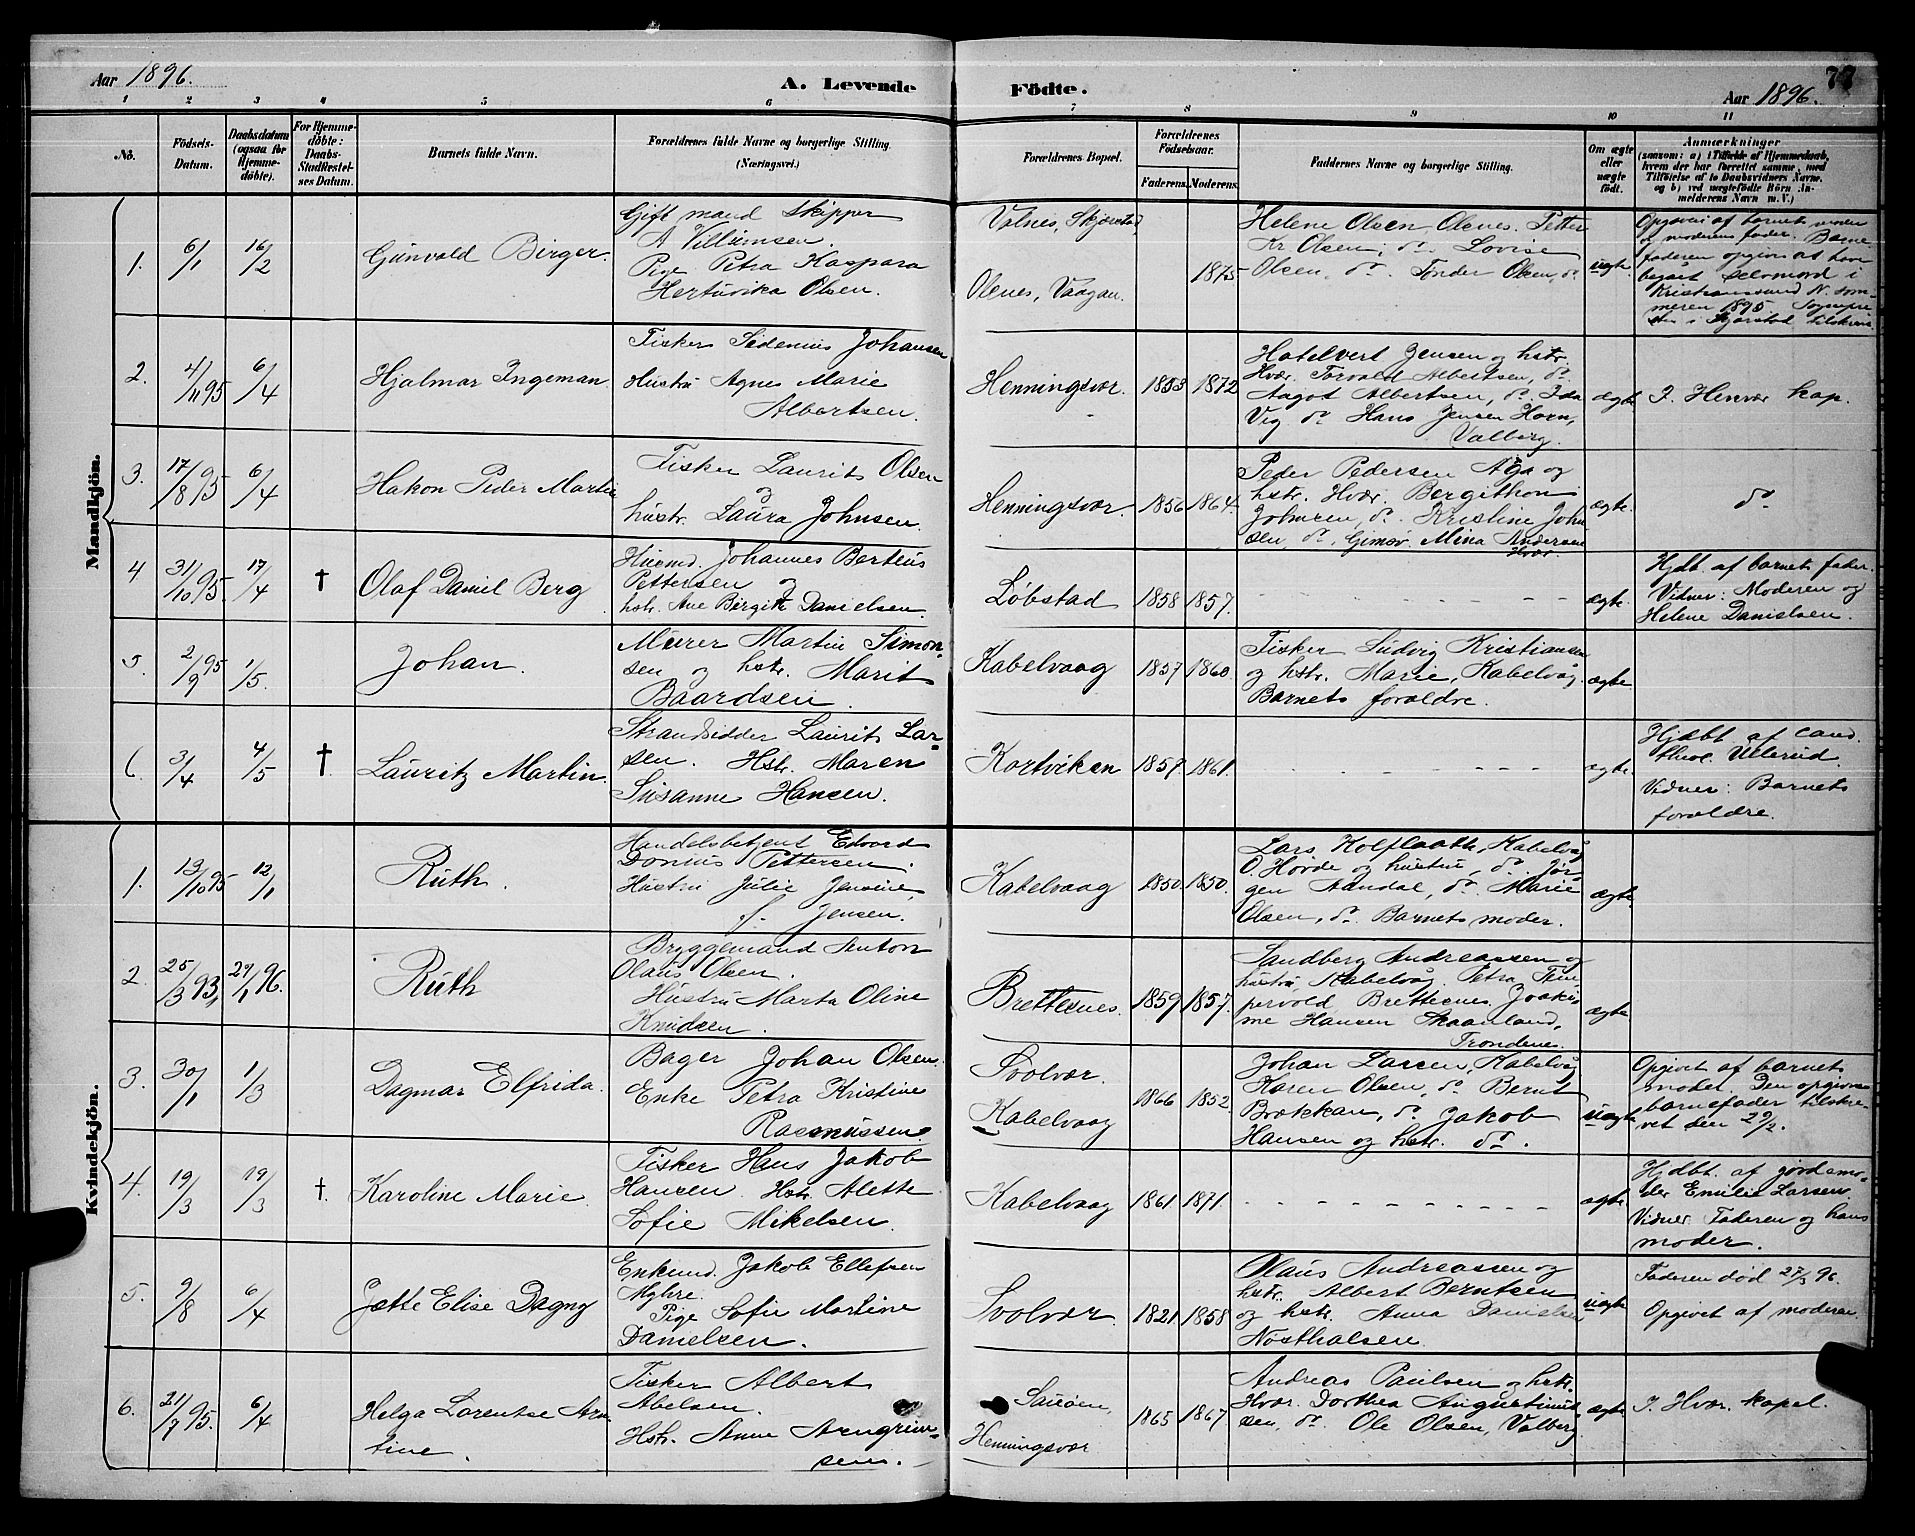 Aar 1896.
A. Levende
Födte.
Aar 1896.
77
1 2 3 4 5 6 7 8 9 10 11
No.
Födsels-
Datum.
Daabsdatum
(ogsaa for
Hjemme-
döbte).
For Hjemme-
döbte:
Daabs-
Stadfæstel-
ses Datum.
Barnets fulde Navn.
Forældrenes fulde Navne og borgerlige Stilling.
(Næringsvei.)
Forældrenes Bopæl.
Forældrenes
Födselsaar.
Faderens. Moderens.
Faddernes Navne og borgerlige Stilling.
Om ægte
eller
uægte
födt.
Anmærkninger
(saasom: a) i Tilfælde af Hjemmedaab,
hvem der har forrettet samme, med
Tilföielse af to Daabsvidners Navne,
og b) ved uægtefödte Börn An-
melderens Navn m. V.)
Mandkjön.
1. 6/1 16/2
Gunvald Birger.
Gift mand Skipper
A Villumsen.
Pige Petra Kaspara
Hertuvika Olsen.
Valnes, Skjærstad
Olenes, Vaagan.
1875
Helene Olsen, Olenes. Petter
Kr Olsen, do. Lovise
Olsen, do. Tønder Olsen, do
uægte.
Opgivet af barnets moder
og moderens fader. Barne
faderen opgives at have
begaat selvmord i
Kristianssund N. som-
meren 1895. Sognepre-
sten i Skjærstad tilskrevet
2. 4/11 95 6/4
Hjalmar Ingeman
Fisker Sedenius Johansen
Hustru Agnes Marie
Albertsen.
Henningsvær. 1853 1872
Hatelvert Jensen og hstr.
Hvær. Torvald Albertsen, do.
Aagot Albertsen, do. Ida
Vig do Hans Jensen Horn,
Valberg.
ægte
I. Henvær kap.
3. 17/8 95 6/4
Hakon Peder Martin
Fisker Laurits Olsen
og
hustr. Laura Johnsen.
Henningsvær. 1856 1864.
Peder Pedersen Aga og
hstr. Hvær. Bergithon
Johnsen, do. Kristine John
sen, do, Gimsø. Mina Andersen
Hvær.
ægte.
do
4 31/10 95. 17/4 †
Olaf Daniel Berg
Husmd. Johannes Berteus
Pettersen og
hstr. Ane Birgit Danielsen
Løbstad 1858 1857.
ægte.
Hjdt. af barnets fader.
Vidner: Moderen og
Helene Danielsen.
5 2/9 95 1/5.
Johan.
Murer Martin Simon-
sen og hstr. Marit
Baardsen.
Kabelvaag 1857 1860
Fisker Ludvig Kristiansen
og hstr. Marie, Kabelvåg.
Barnets forældre.
ægte
6. 3/4 4/5 †
Lauritz Martin.
Strandsidder Laurits Lar-
sen. Hstr. Maren
Susanne Hansen.
Kortviken 1857. 1861.
ægte.
Hjæbt. af cand.
theol. Ullerud.
Vidner: Barnets
forældre.
Kvindekjön.
1. 13/10 95 12/1
Ruth.
Handelsbetjent Edvard
Donius Pettersen.
Hustru Julie Jensine,
f. Jensen.
Kabelvaag 1850. 1850.
Lars Kolflaath, Kabelvåg
O. Hovde og hustru, do. Jør-
gen Aandal, do. Marie
Olsen, do. Barnets moder.
ægte.
2. 25/3 93, 29/1 96.
Ruth
Bryggemand Anton
Olaus Olsen.
Hustru Marta Oline
Knudsen.
Brettesnes. 1859 1857.
Sandberg Andreassen og
hustru, Kabelvåg. Petra
pervold Brettesnes, Joaki-
me Hansen Skaanland,
Trondenes.
ægte
3. 30/1 1/3
Dagmar Elfrida.
Bager Johan Olsen.
Enke Petra Kristine
Rasmussen.
Svolvær.
Kabelvaag 1866 1852
Johan Larsen, Kabelvåg
Karen Olsen, do. Bernt
Brækkan, do. Jakob
Hansen og hstr. do.
uægte
Opgivet af barnets
moder. Den opgivne
barnefader tilskre-
vet den 29/2.
4. 19/3 19/3 †.
Karoline Marie
Fisker Hans Jakob
Hansen. Hstr. Alette
Sofie Mikelsen.
Kabelvaag 1861 1871.
ægte
Hjdbt. af jordemo-
der Emilie Larsen.
Vidner. Faderen og hans
moder.
5. 9/8 6/4
Jætte Elise Dagny
Enkemd. Jakob Ellefsen
Myhre.
Pige Sofie Martine
Danielsen.
Svolvær 1821 1858
Olaus Andreassen og
hstr. Albert Berntsen
og hstr. Anna Danielsen
uægte
Faderen død 27/3 96.
Opgivet af moderen
6. 21/7 95. 6/4
Helga Lorentse Arn
tine
Fisker Albert
Abelsen.
Hstr. Anne Arngrim-
sen.
Sauøen,
Henningsvær 1865 1867
Andreas Paulsen og hstr.
Hvær. Dorthea Augustinus
sen, do. Ole Olsen, Valberg
ægte
I. Hvær. kapel.